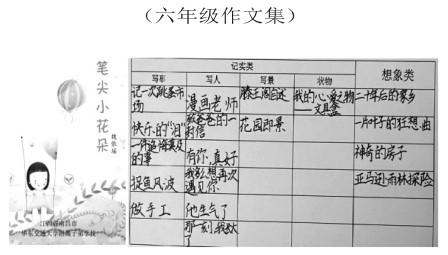 （六年级作文集）
笔尖小花朵
江西省南昌市
华东交通大学附属子弟学校
记实类
想象类
写形
写人
写景
状物
记一次跳蚤市场
漫画老师
滕王阁自述
我的心爱之物——文具盒
二十年后的家乡
快乐的“泪”
致爸爸的一封信
花园即景
一片叶子的狂想曲
一件追悔莫及的事
有你,真好
神奇的房子
捉鱼风波
我多想再次遇见你
亚马逊雨林探险
做手工
他生气了
那一刻我